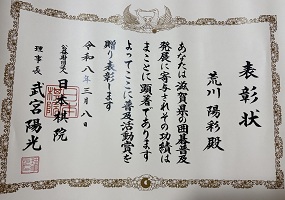 表彰状
荒川 陽彩 殿
あなたは滋賀県の囲碁普及
発展に寄与されその功績は
まことに顕著であります
よってここに普及活動賞を
贈り表彰します
令和八年三月八日
公益財団法人 日本棋院
理事長 武宮陽光